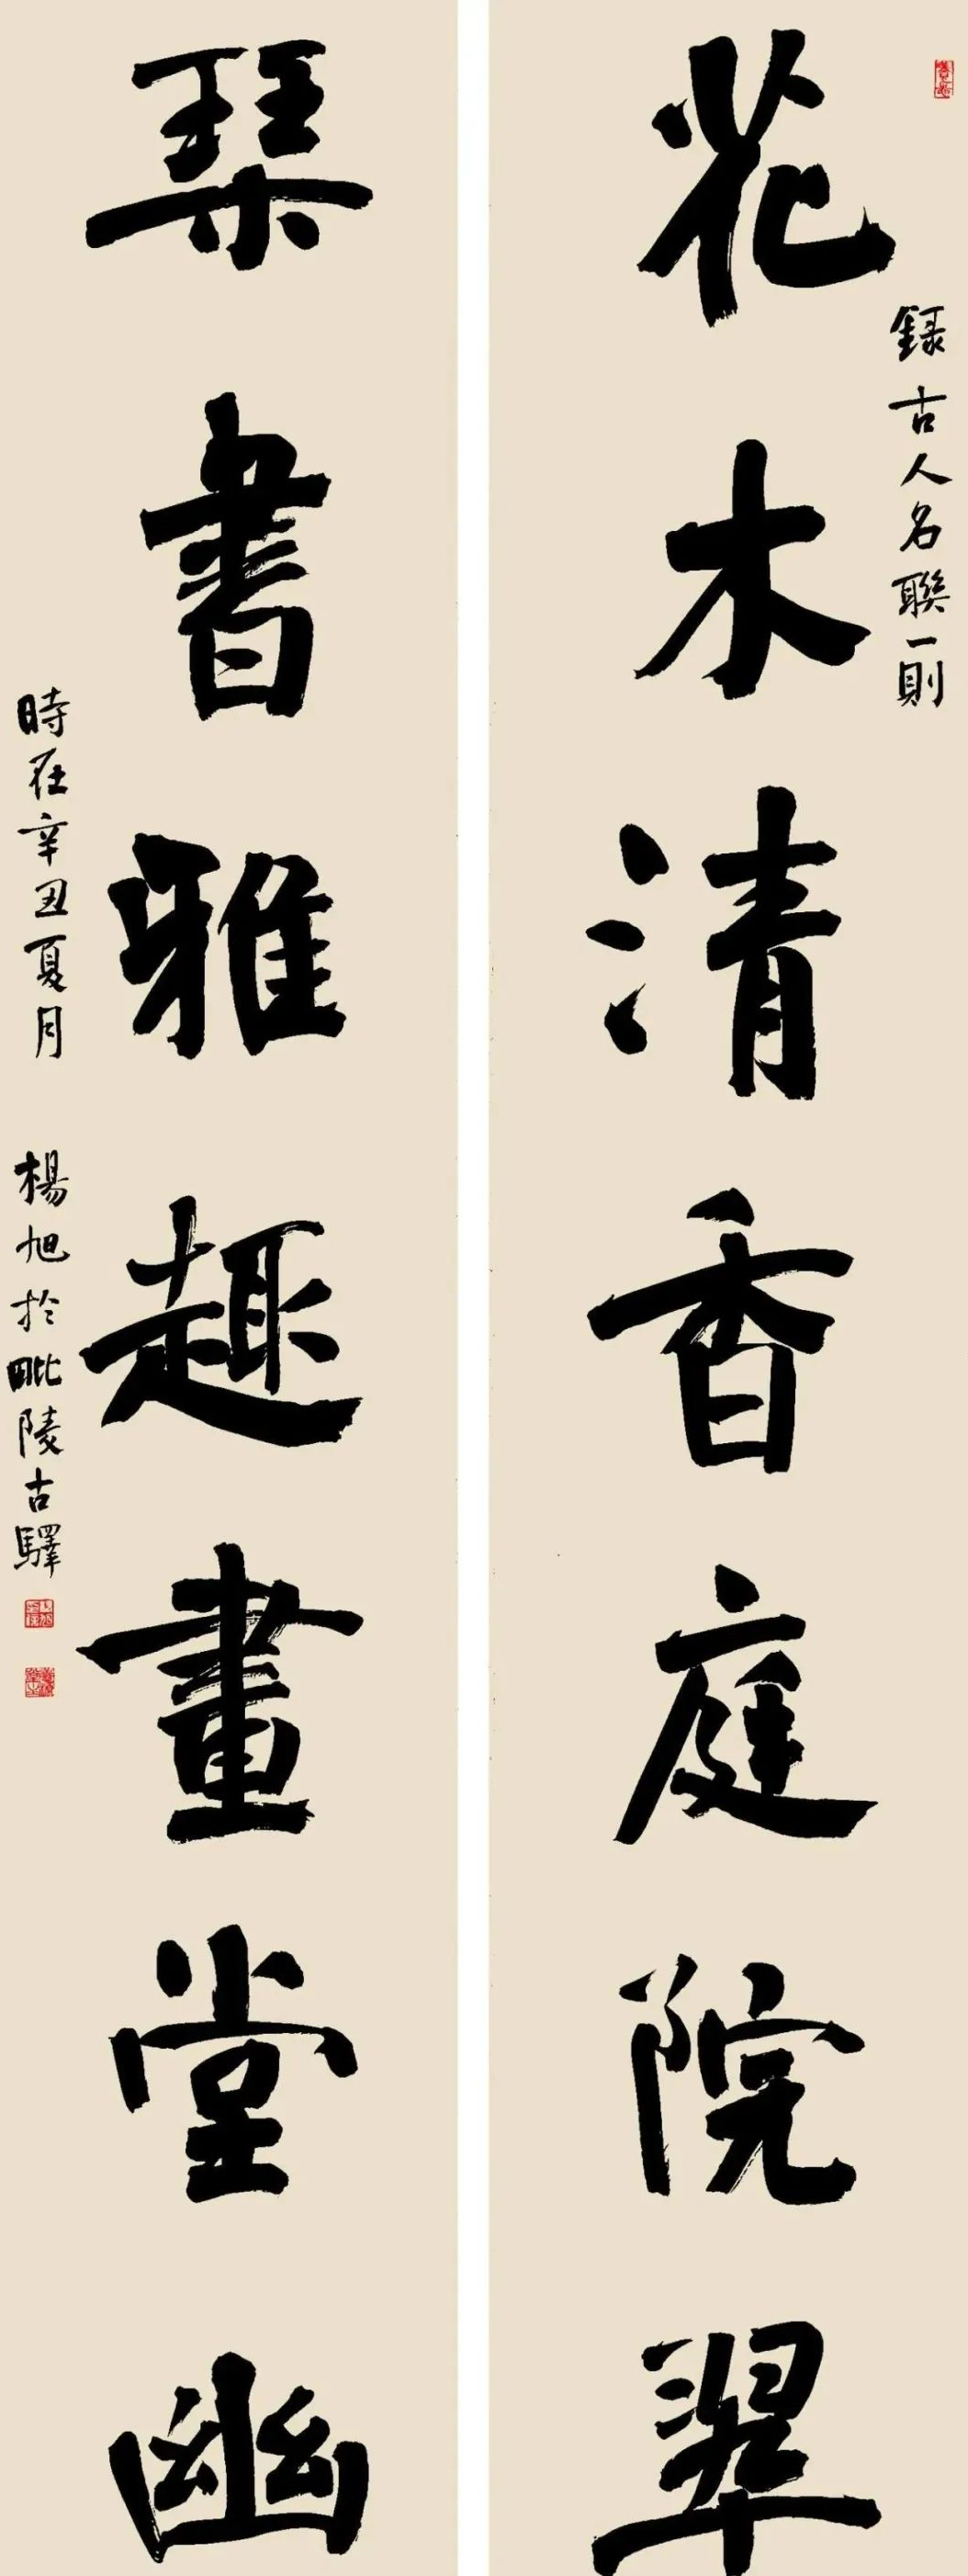 花木清香庭院翠
錄古人名聯一則
琹書雅趣畫堂幽
時在辛丑夏月 楊旭於毗陵古驛